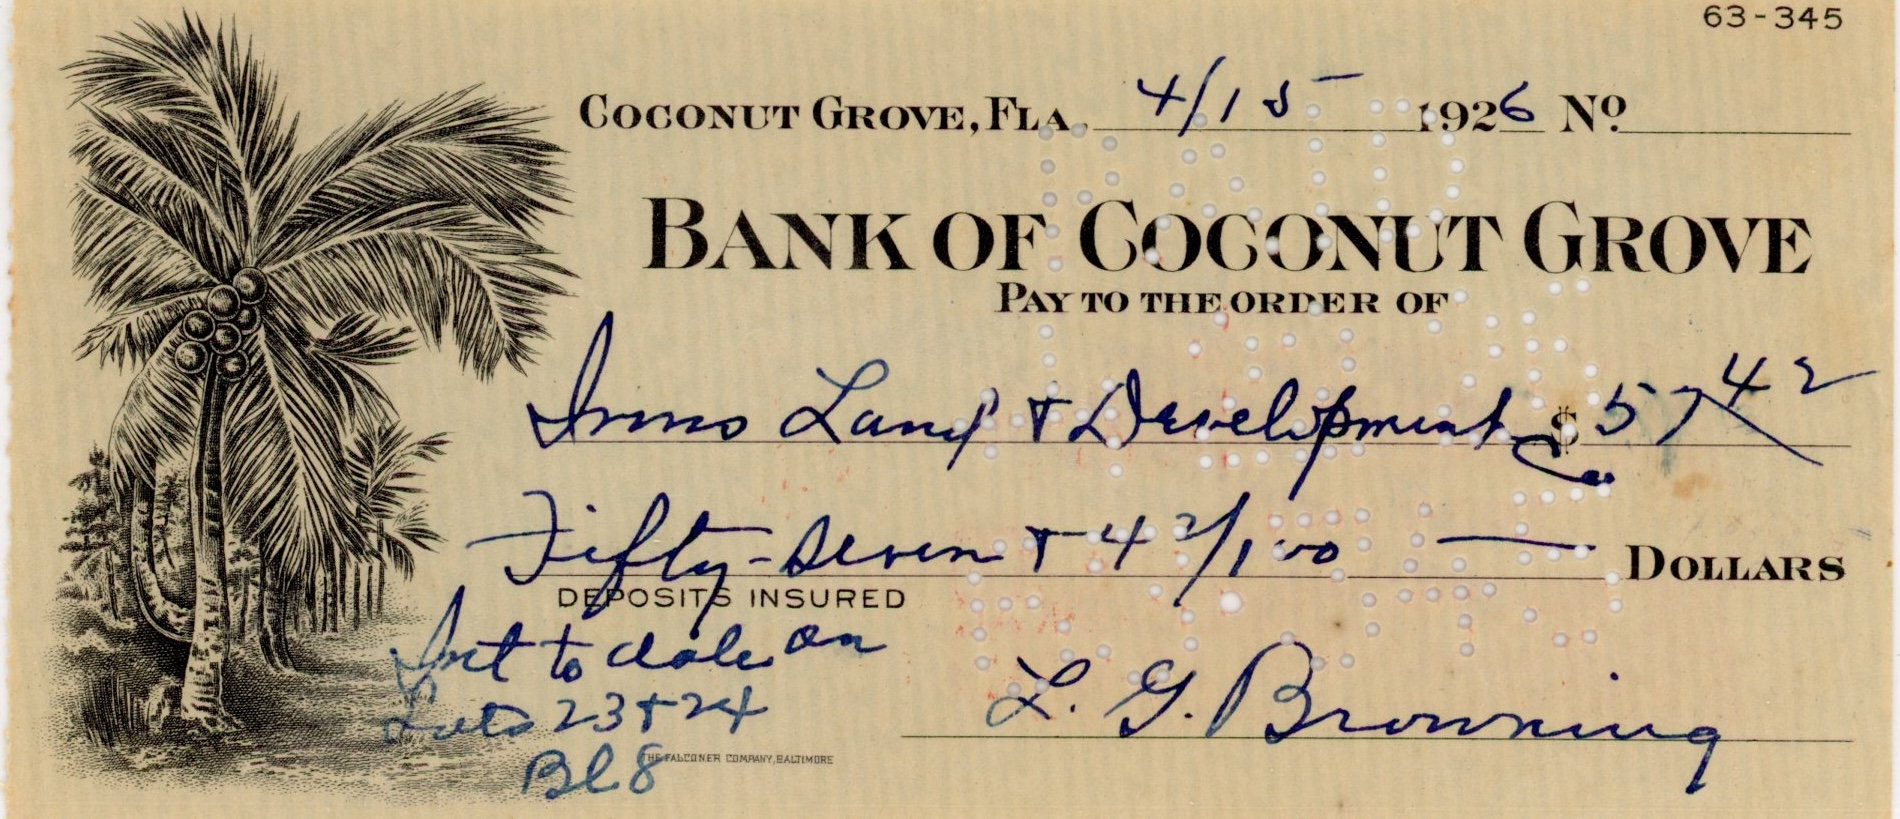 63-345
COCONUT GROVE, FLA. 4/15 1926 No
BANK OF COCONUT GROVE
PAY TO THE ORDER OF
Land & Development Co $57 42
Fifty-Seven & 42/100 DOLLARS
DEPOSITS INSURED
Int to date on
Lots 23 & 24
Bl 8
L. G. Browning
THE FALCONER COMPANY, BALTIMORE